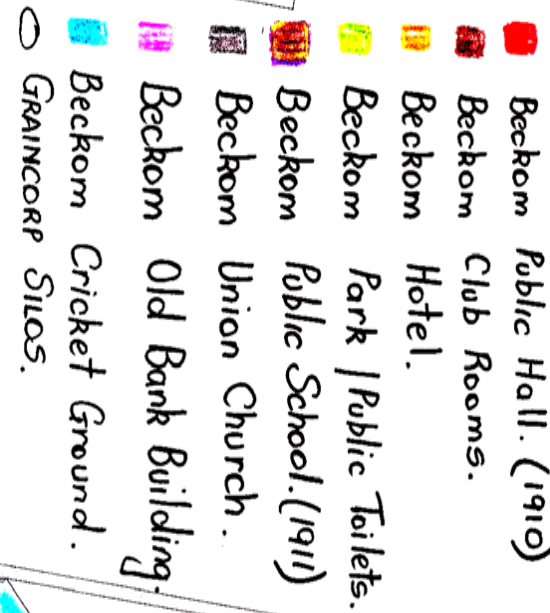 Beckom Public Hall. (1910)
Beckom Club Rooms.
Beckom Hotel.
Beckom Park / Public Toilets.
Beckom Public School. (1911)
Beckom Union Church.
Beckom Old Bank Building.
Beckom Cricket Ground.
GRAINCORP SILOS.